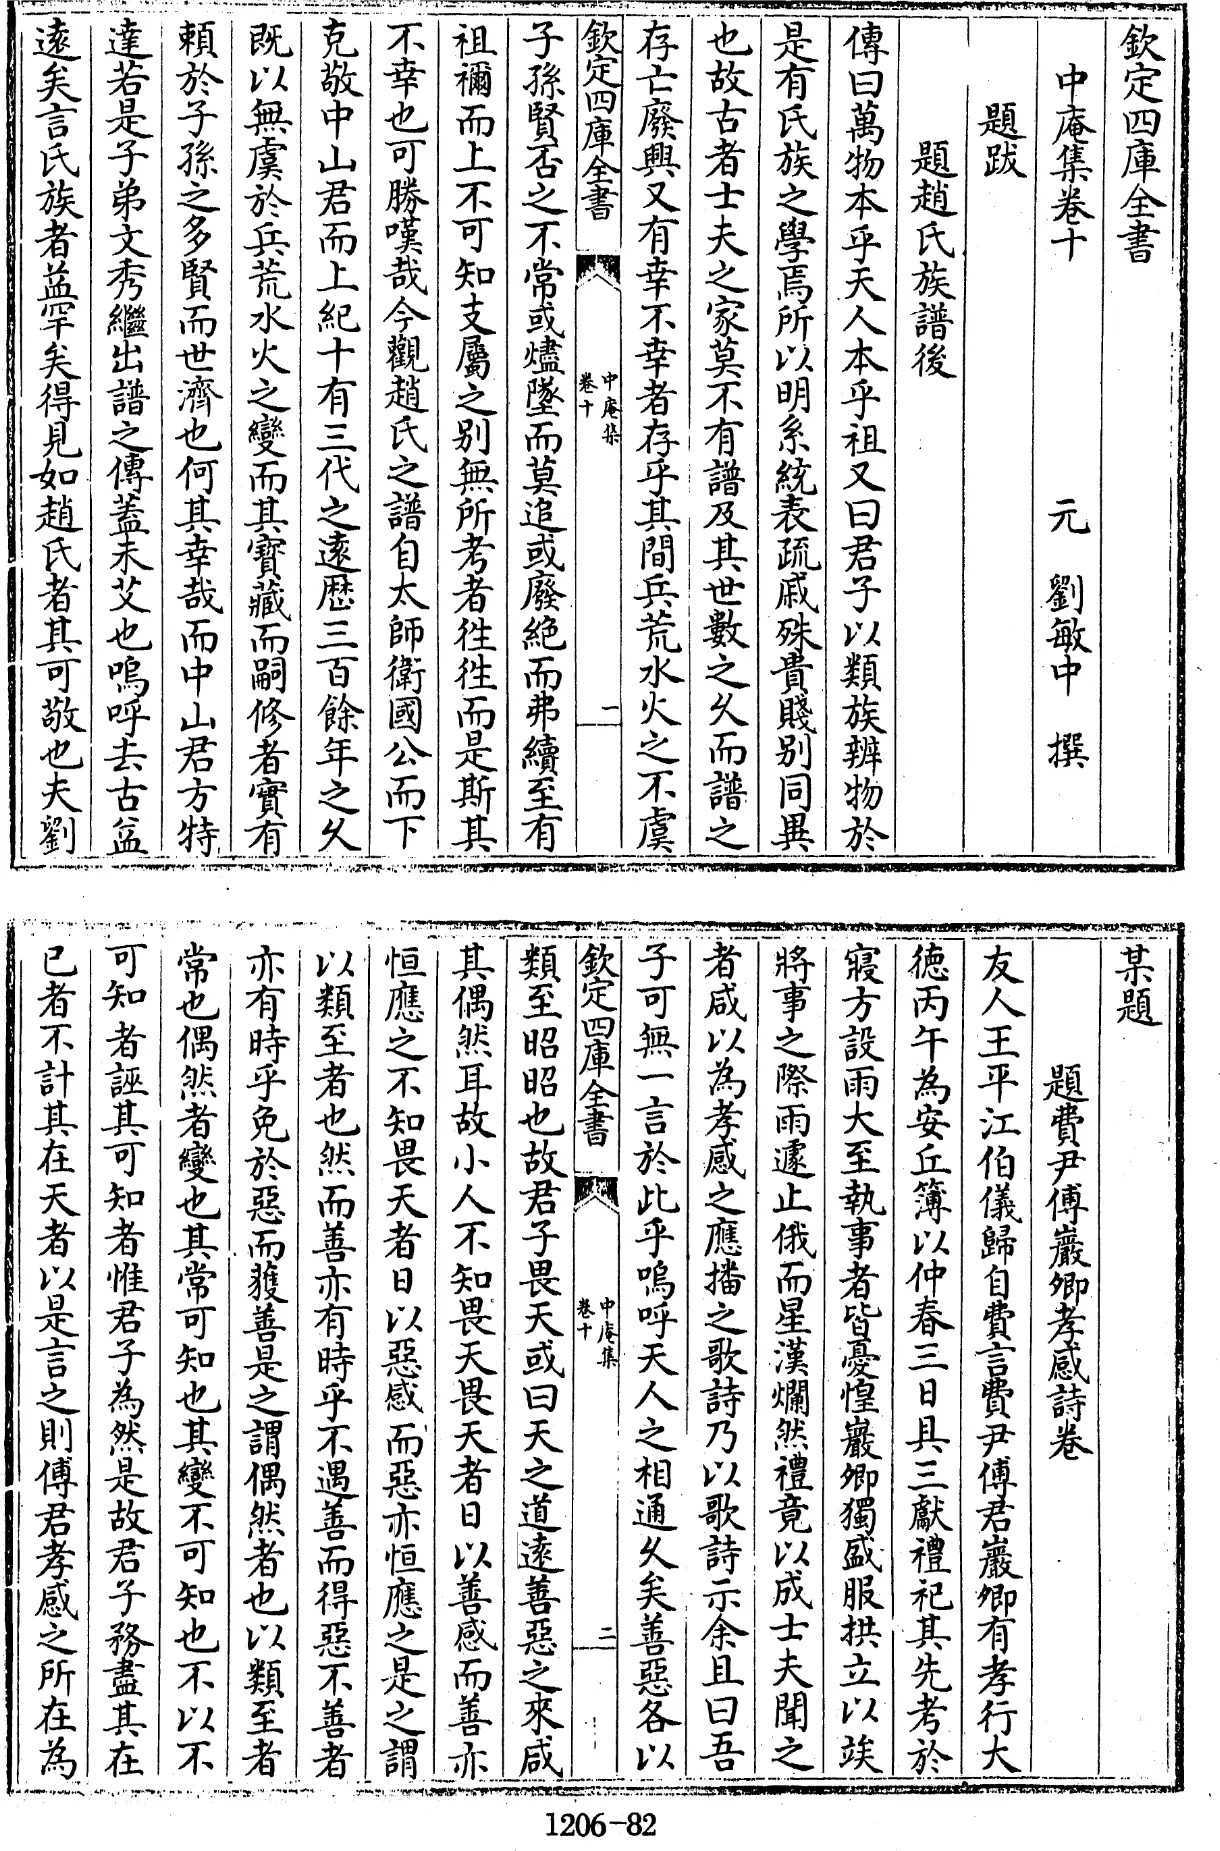 欽定四庫全書
中庵集卷十
元　劉敏中　撰
題跋
題趙氏族譜後
傳曰萬物本乎天人本乎祖又曰君子以類族辨物於
是有氏族之學焉所以明系統表疏戚殊貴賤别同異
也故古者士夫之家莫不有譜及其世數之久而譜之
存亡廢興又有幸不幸者存乎其間兵荒水火之不虞
欽定四庫全書
中庵集
卷十
一
子孫賢否之不常或燼墜而莫追或廢絶而弗續至有
祖禰而上不可知支屬之别無所考者徃徃而是斯其
不幸也可勝嘆哉今觀趙氏之譜自太師衛國公而下
克敬中山君而上紀十有三代之遠歴三百餘年之久
既以無虞於兵荒水火之變而其寳藏而嗣修者實有
賴於子孫之多賢而世濟也何其幸哉而中山君方特
達若是子弟文秀繼出譜之傳蓋未艾也嗚呼去古益
遠矣言氏族者益罕矣得見如趙氏者其可敬也夫劉
某題
題費尹傅巖卿孝感詩卷
友人王平江伯儀歸自費言費尹傅君巖卿有孝行大
徳丙午為安丘簿以仲春三日具三獻禮祀其先考於
寢方設雨大至執事者皆憂惶巖卿獨盛服拱立以竢
將事之際雨遽止俄而星漢爛然禮竟以成士夫聞之
者咸以為孝感之應播之歌詩乃以歌詩示余且曰吾
子可無一言於此乎嗚呼天人之相通久矣善惡各以
欽定四庫全書
中庵集
卷十
二
類至昭昭也故君子畏天或曰天之道遠善惡之來咸
其偶然耳故小人不知畏天畏天者日以善感而善亦
恒應之不知畏天者日以惡感而惡亦恒應之是之謂
以類至者也然而善亦有時乎不遇善而得惡不善者
亦有時乎免於惡而獲善是之謂偶然者也以類至者
常也偶然者變也其常可知也其變不可知也不以不
可知者誣其可知者惟君子為然是故君子務盡其在
已者不計其在天者以是言之則傅君孝感之所在為
1206-82